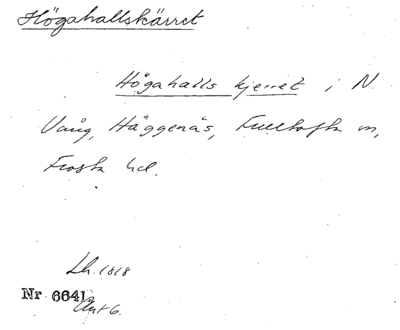 Högahallskärret
Högahalls kjerret i N
Vång, Häggenäs, Fulltofta sn,
Frosta hd.
Lh. 1818
Nr 6641
Akt 6.